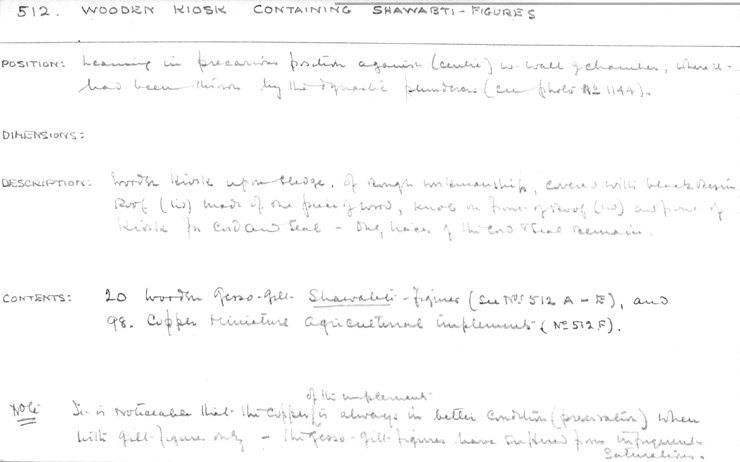 512. WOODEN KIOSK CONTAINING SHAWABTI-FIGURES
POSITION: Leaning in precarious position against (centre) W. wall of chamber, where it
had been thrown by the dynastic plunderers (see photo No 1144).
DIMENSIONS:
DESCRIPTION: Wooden kiosk upon sledge, of rough workmanship, covered with black resin,
Roof (lid) made of one piece of wood, knob on front of roof (lid) and front of
kiosk for cord and seal - Only traces of the cord & seal remain.
CONTENTS: 20 wooden gesso-gilt Shawabti-figures (see Nos 512 A - E), and
98. Copper miniature agricultural implements (No 512 F).
of the implements
Note It is noticeable that the copper is always in better condition (preservation) when
with gilt-figures only - the gesso-gilt figures have suffered from
saturations.